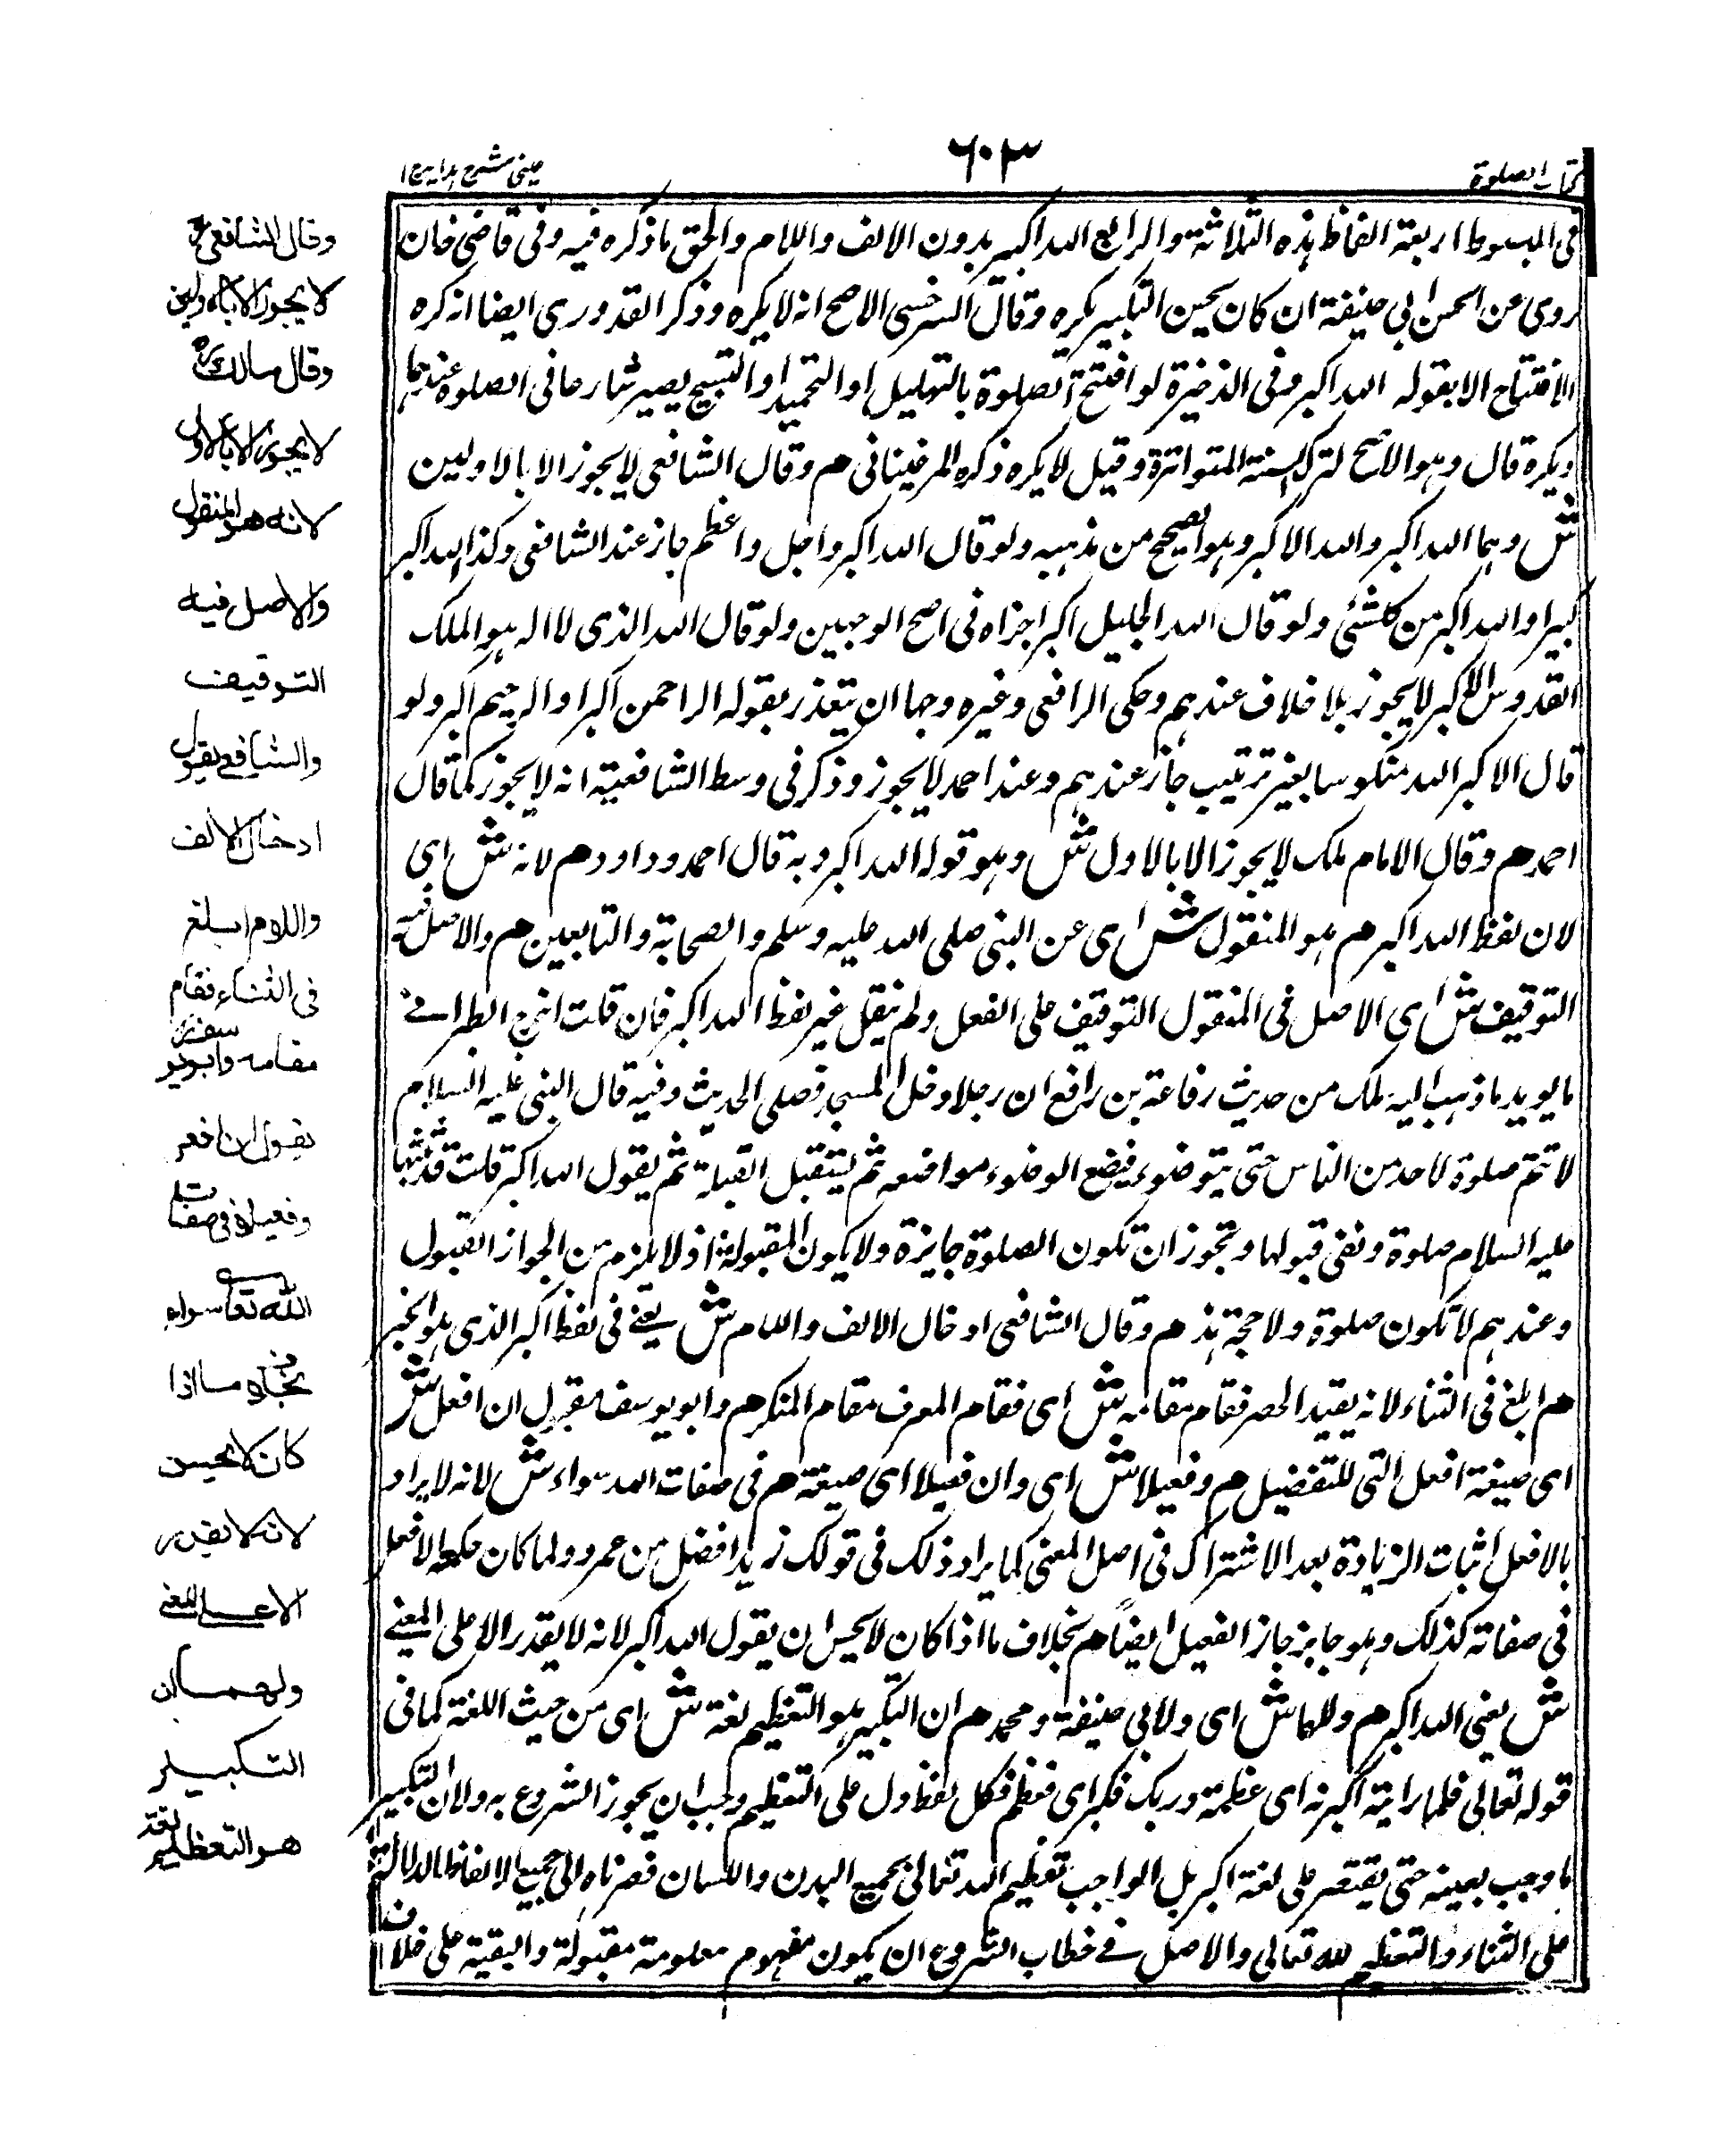 كتاب الصلوة
٦٠٣
عينى شرح هدايه ج ١
فى المبسوط اربعة الفاظ هذه الثلاثة والرابع الله اكبير بدون الالف واللام والحق ما ذكره فيه وفى قاضى خان
روى عن الحسن ابى حنيفة ان كان يحسن التكبير يكره وقال السرخسى الاصح انه لا يكره وذكر القدورى ايضا انه كره
الافتتاح الا بقوله الله اكبر وفى الذخيرة لو افتتح الصلوة بالتهليل او التحميد او التسبيح يصير شارعا فى الصلوة عندهما
ويكره قال وهو الاصح لترك السنة المتواترة وقيل لا يكره ذكره المرغينانى هم وقال الشافعى لا يجوز الا بالاولين
ش وهما الله اكبر والله الاكبر وهو الصحيح من مذهبه ولو قال الله اكبر واجل واعظم جاز عند الشافعى وكذا الله اكبر
كبيرا والله اكبر من كل شئ ولو قال الله الجليل اكبر اجزاه فى اصح الوجهين ولو قال الله الذى لا اله هو الملك
القدوس الاكبر لا يجوز بلا خلاف عندهم وحكى الرافعى وغيره وجها ان يتعذر بقوله الراحمن اكبر او الرحيم اكبر ولو
قال الاكبر الله منكوسا بغير ترتيب جاز عندهم وعند احمد لا يجوز وذكر فى وسط الشافعية انه لا يجوز كما قال
احمد هم وقال الامام ملك لا يجوز الا بالاول ش وهو قوله الله اكبر وبه قال احمد وداود هم لانه ش اى
لان لفظ الله اكبر هم هو المنقول ش اى عن النبى صلى الله عليه وسلم والصحابة والتابعين هم والاصل فيه
التوقيف ش اى الاصل فى المنقول التوقيف على الفعل ولم ينقل غير لفظ الله اكبر فان قلت اخرج الطبرانى
ما يويد ما ذهب اليه ملك من حديث رفاعة بن رافع ان رجلا دخل المسجد فصلى الحديث وفيه قال النبى عليه السلام
لا تتم صلوة لاحد من الناس حتى يتوضوء فيضع الوضوء مواضعه ثم يستقبل القبلة ثم يقول الله اكبر قلت قد اثبتها
عليه السلام صلوة ونفى قبولها وتجوز ان تكون الصلوة جايزة ولا يكون المقبولة اذ لا يلزم من الجواز القبول
وعندهم لا تكون صلوة ولا حجة هذ هم وقال الشافعى ادخال الالف واللام ش يعنى فى لفظ اكبر الذى هو الخبر
هم ابلغ فى الثناء لانه يقيد الحصر فقام مقامه ش اى فقام المعرف مقام المنكر هم وابو يوسف يقول ان افعل ش
اى صيغة افعل التى للتفضيل هم وفعيلا ش اى وان فعيلا اى صيغة هم فى صفات الله سواء ش لانه لا يراد
بالافعل اثبات الزيادة بعد الاشتراك فى اصل المعنى كما يراد ذلك فى قولك زيد افضل من عمرو ولما كان حكم الافعل
فى صفاته كذلك وهو جايز جاز الفعيل ايضاً هم بخلاف ما اذا كان لا يحسن ان يقول الله اكبر لانه لا يقدر الا على المعنى
ش يعنى الله اكبر هم ولهما ش اى ولابى حنيفة ومحمد هم ان التكبير هو التعظيم لغة ش اى من حيث اللغة كما فى
قوله تعالى فلما راينه اكبرنه اى عظمنه وربك فكبر اى فعظم فكل لفظ دل على التعظيم وجب ان يجوز الشروع به ولان التكبير
ما وجب بعينه حتى يقتصر على لغة اكبر بل الواجب تعظيم الله تعالى بجميع البدن واللسان فصرناه الى جميع الالفاظ الدالة
على الثناء والتعظيم لله تعالى والاصل فى خطاب الشروع ان يكون مفهوم معلومة مقبولة والبقية على خلاف
وقال الشافعى رح
لا يجوز الا بالاولين
وقال مالك رح
لا يجوز الا بالاول
لانه هو المنقول
والاصل فيه
التوقيف
والشافعى يقول
ادخال الالف
واللام ابلغ
فى الثناء فقام
مقامه وابو يوسف رح
يقول ان افعل
وفعيلا فى صفات
الله تعالى سواء
بخلاف ما اذا
كان لا يحسن
لانه لا يقدر
الا على المعنى
ولهما ان
التكبير
هو التعظيم لغة